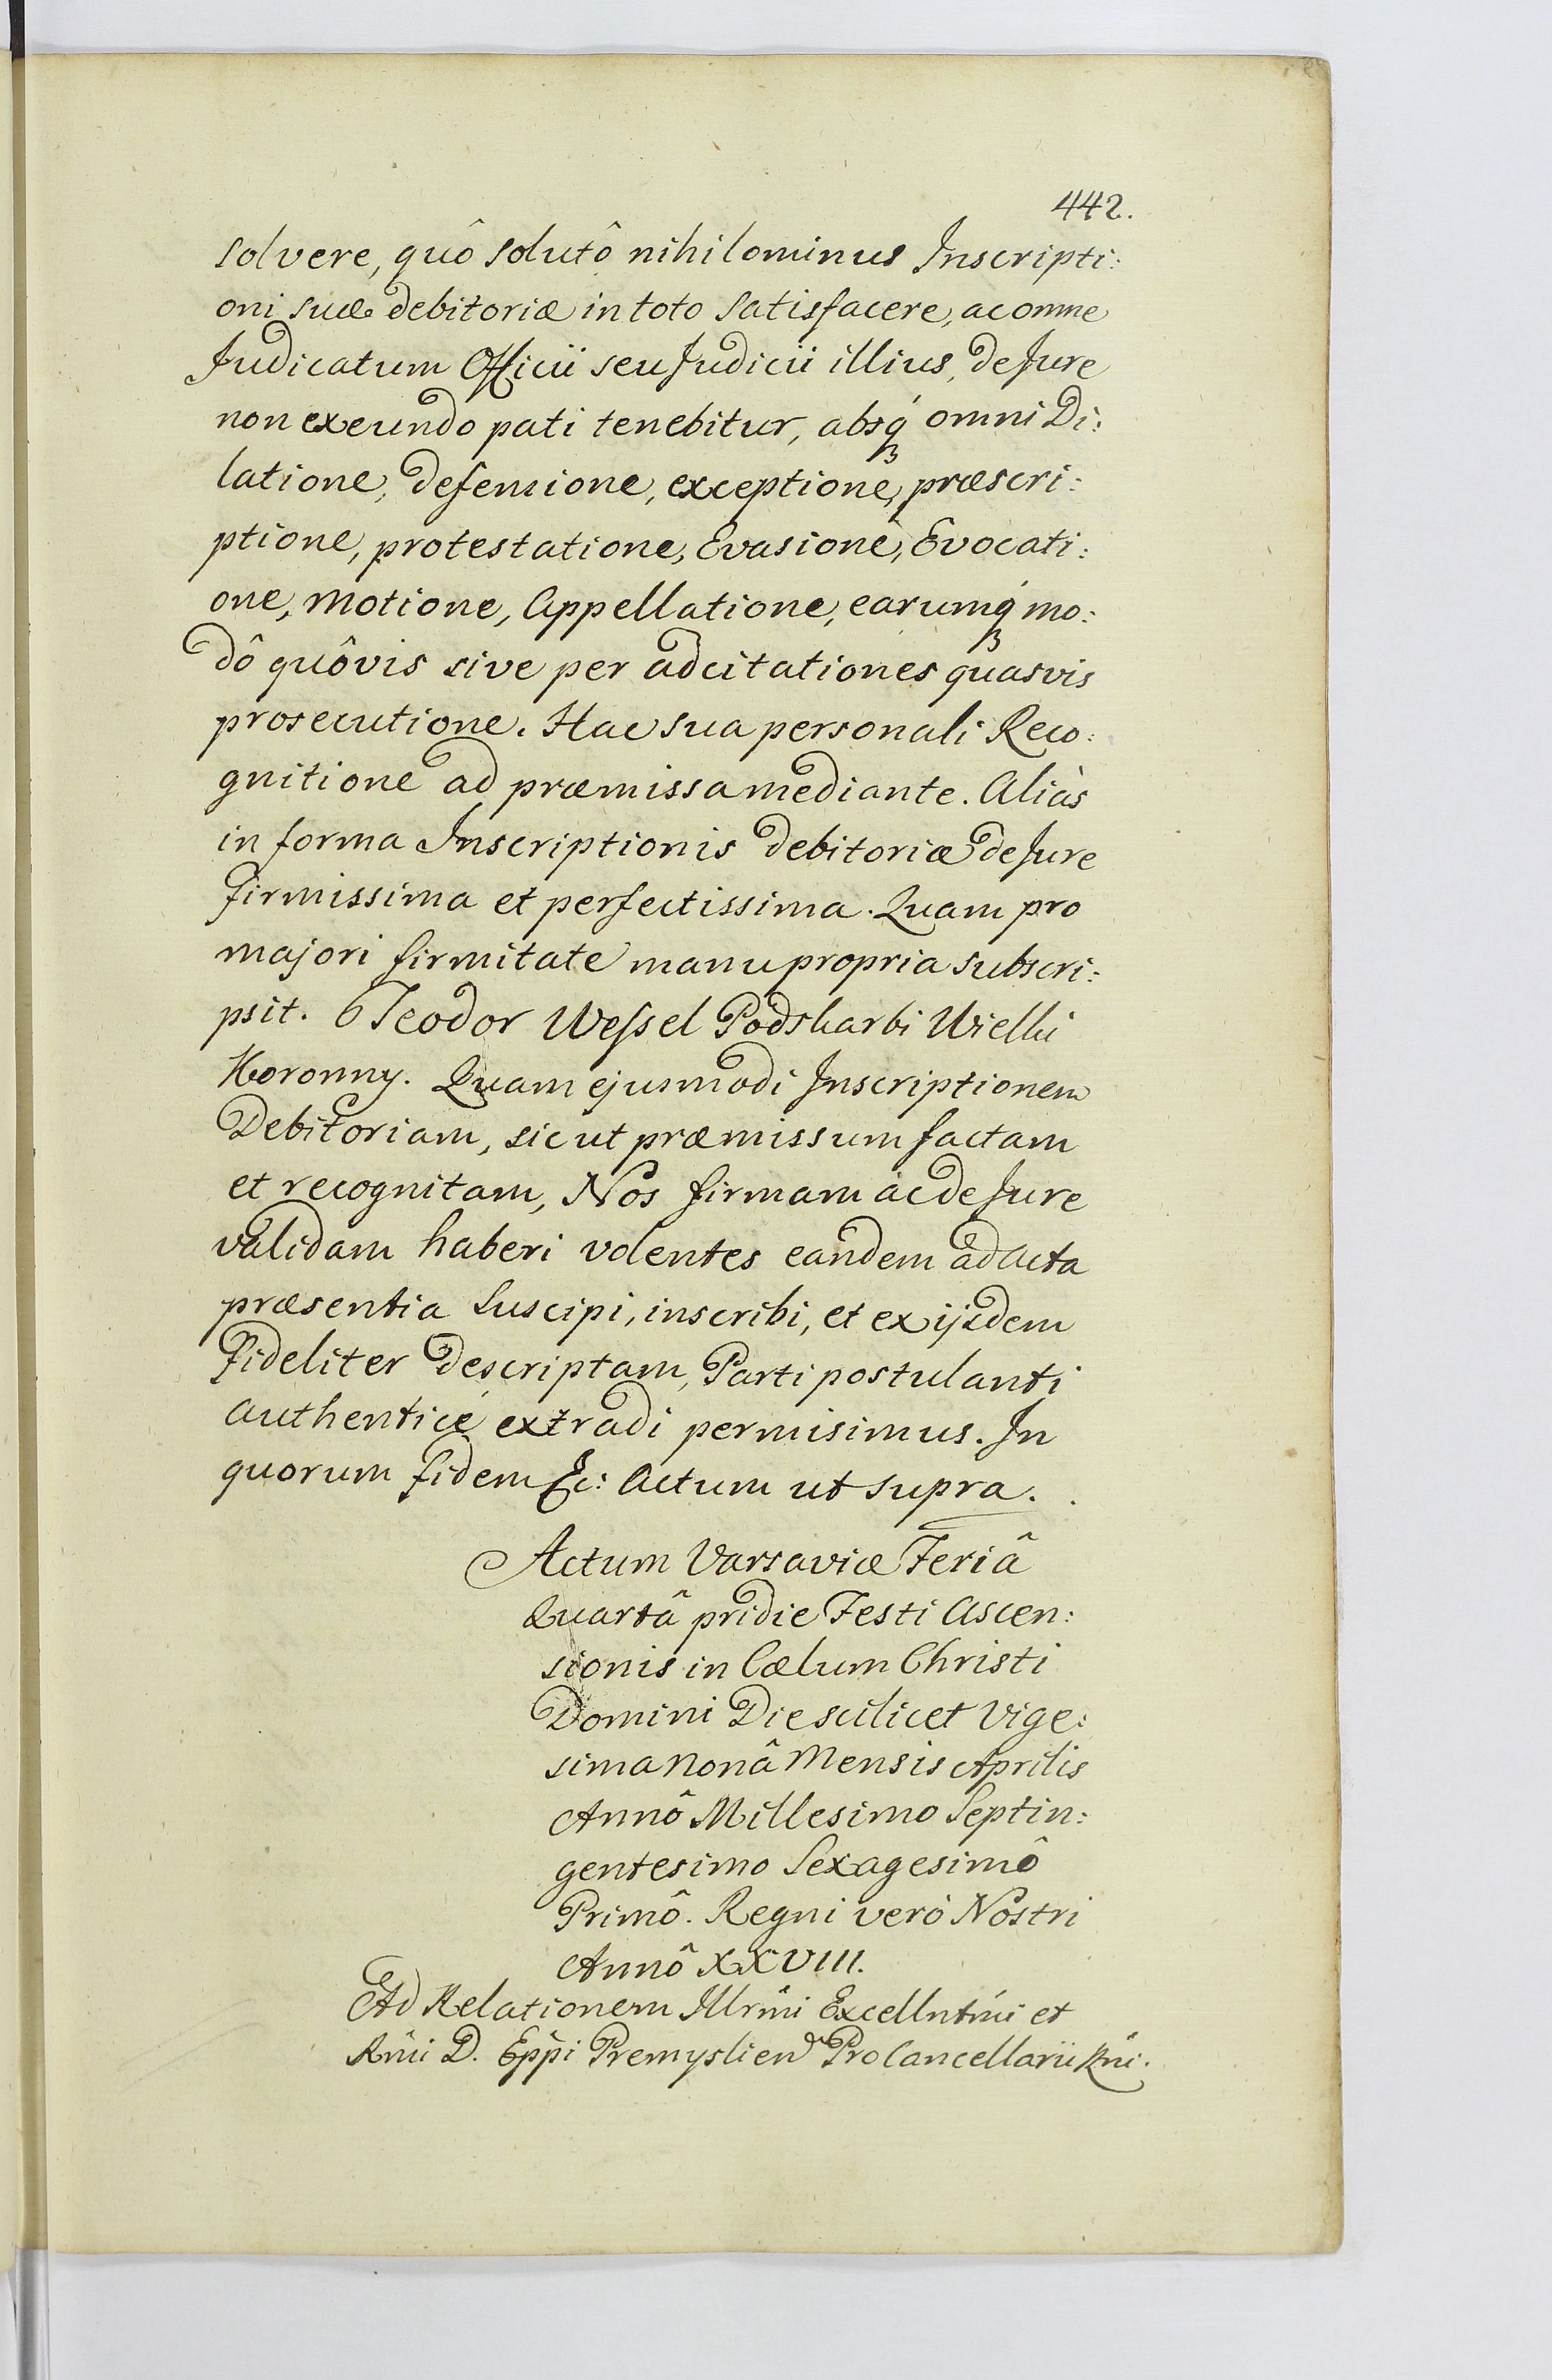 442.
solvere, quô solutô nihilominus Inscripti:
oni suæ debitoriæ in toto satisfacere, ac omne
Judicatum Officii seu Judicii illius, de Jure
non exeundo pati tenebitur, absq́ꝫ omni Di:
latione, defensione, exceptione, præscri:
ptione, protestatione, Evasione, Evocati:
one, Motione, Appellatione, earumq́ꝫ mo:
dô quôvis sive per adcitationes quasvis
prosecutione. Hac sua personali Reco:
gnitione ad præmissa mediante. Aliàs
in forma Inscriptionis debitoriæ de Jure
firmissima et perfectissima. Quam pro
majori firmitate manu propria subscri:
psit. Teodor Wessel Podskarbi Wielki
Koronny. Quam ejusmodi Inscriptionem
Debitoriam, sicut præmissum factam
et recognitam, Nos firmam ac de Jure
validam haberi volentes eandem ad Acta
præsentia suscipi, inscribi, et ex ijsdem
fideliter descriptam, Parti postulanti
authenticè extradi permisimus. In
quorum fidem &c: Actum ut supra.
Actum Varsaviæ Feriâ
Quartâ pridie Festi Ascen:
sionis in Cælum Christi
Domini Die scilicet Vige:
sima Nonâ Mensis Aprilis
Annô Millesimo Septin:
gentesimo Sexagesimô
Primô. Regni verò Nostri
Annô XXVIII.
Ad Relationem Illrm̃i Excellntm̃i et
Rm̃i D. Epp̃i Premyslien Pro Cancellarii Rñi.